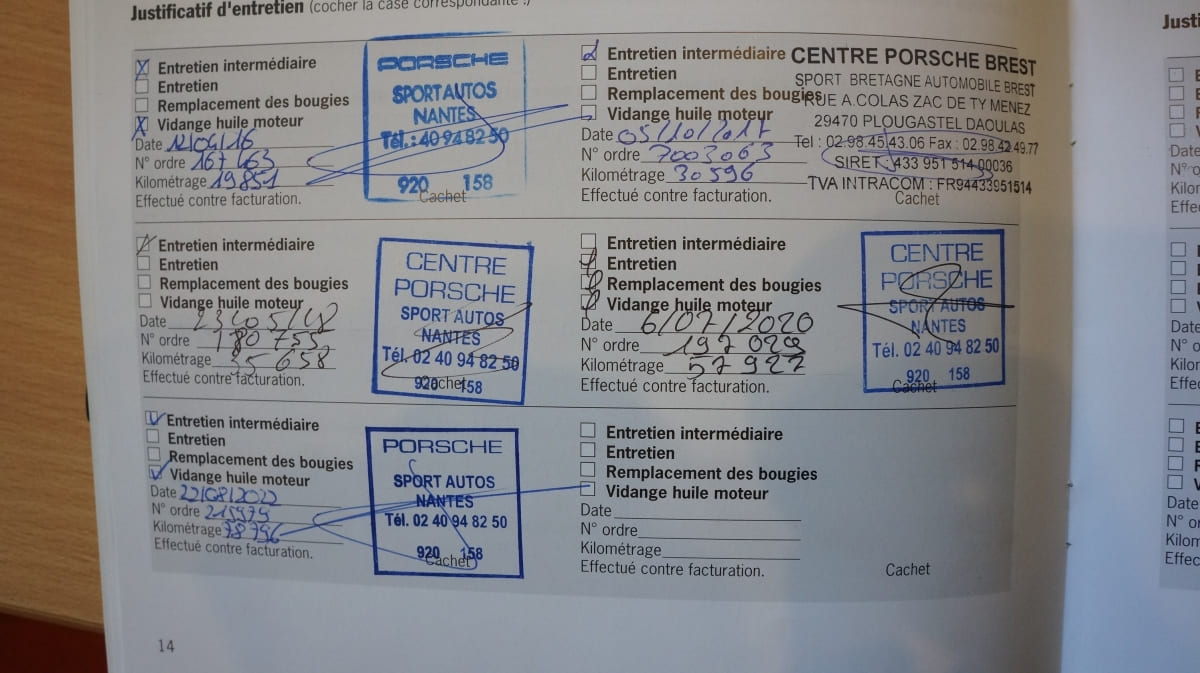 Justificatif d'entretien (cocher la case correspondante !)
Entretien intermédiaire
Entretien
Remplacement des bougies
Vidange huile moteur
Date 12/04/16
N° ordre 167463
Kilométrage 19851
Effectué contre facturation.
PORSCHE
SPORT AUTOS
NANTES
Tél.: 40 94 82 50
920 158
Cachet
Entretien intermédiaire
Entretien
Remplacement des bougies
Vidange huile moteur
Date 05/10/2017
N° ordre 7003063
Kilométrage 30596
Effectué contre facturation.
CENTRE PORSCHE BREST
SPORT BRETAGNE AUTOMOBILE BREST
RUE A.COLAS ZAC DE TY MENEZ
29470 PLOUGASTEL DAOULAS
Tel : 02.98.45.43.06 Fax : 02.98.42.49.77
SIRET : 433 951 514 00036
TVA INTRACOM : FR94433951514
Cachet
Entretien intermédiaire
Entretien
Remplacement des bougies
Vidange huile moteur
Date 23/05/18
N° ordre 180 755
Kilométrage 35 658
Effectué contre facturation.
CENTRE
PORSCHE
SPORT AUTOS
NANTES
Tél. 02 40 94 82 50
920 158
Cachet
Entretien intermédiaire
Entretien
Remplacement des bougies
Vidange huile moteur
Date 6/07/2020
N° ordre 197 029
Kilométrage 57 927
Effectué contre facturation.
CENTRE
PORSCHE
SPORT AUTOS
NANTES
Tél. 02 40 94 82 50
920 158
Cachet
Entretien intermédiaire
Entretien
Remplacement des bougies
Vidange huile moteur
Date 22/08/2022
N° ordre 215979
Kilométrage 78796
Effectué contre facturation.
PORSCHE
SPORT AUTOS
NANTES
Tél. 02 40 94 82 50
920 158
Cachet
Entretien intermédiaire
Entretien
Remplacement des bougies
Vidange huile moteur
Date
N° ordre
Kilométrage
Effectué contre facturation.
Cachet
14